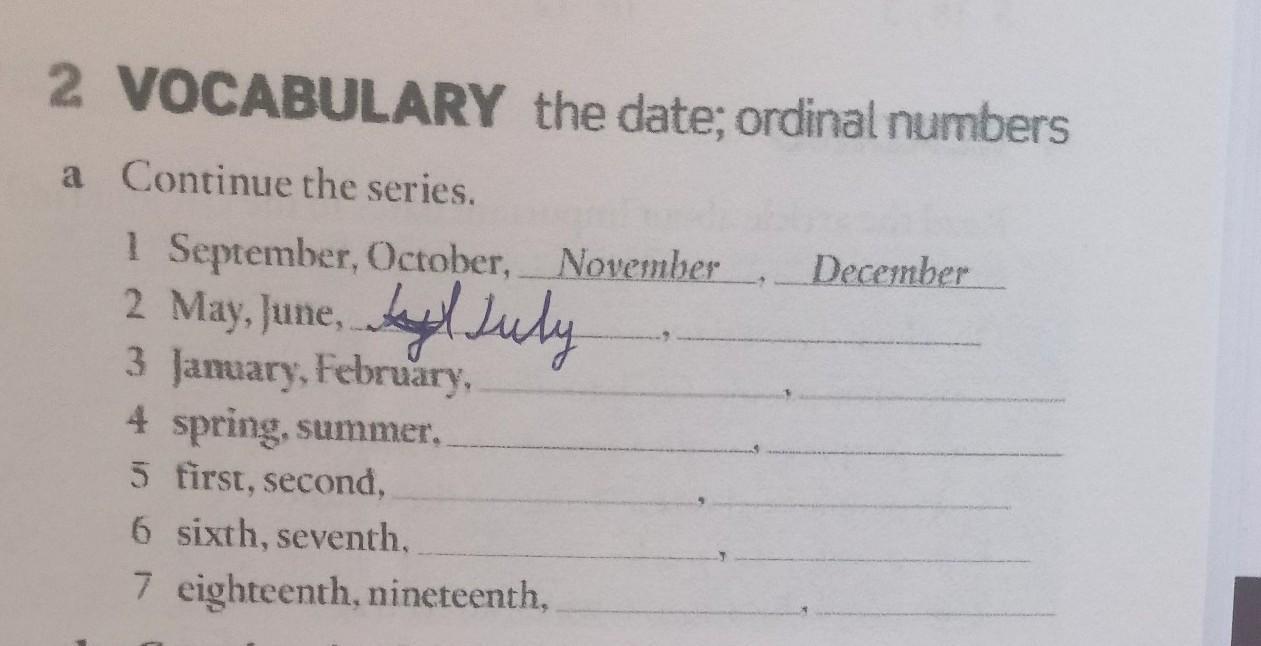 2 VOCABULARY the date; ordinal numbers
a Continue the series.
1 September, October, November, December
2 May, June, July,
3 January, February,
4 spring, summer,
5 first, second,
6 sixth, seventh,
7 eighteenth, nineteenth,